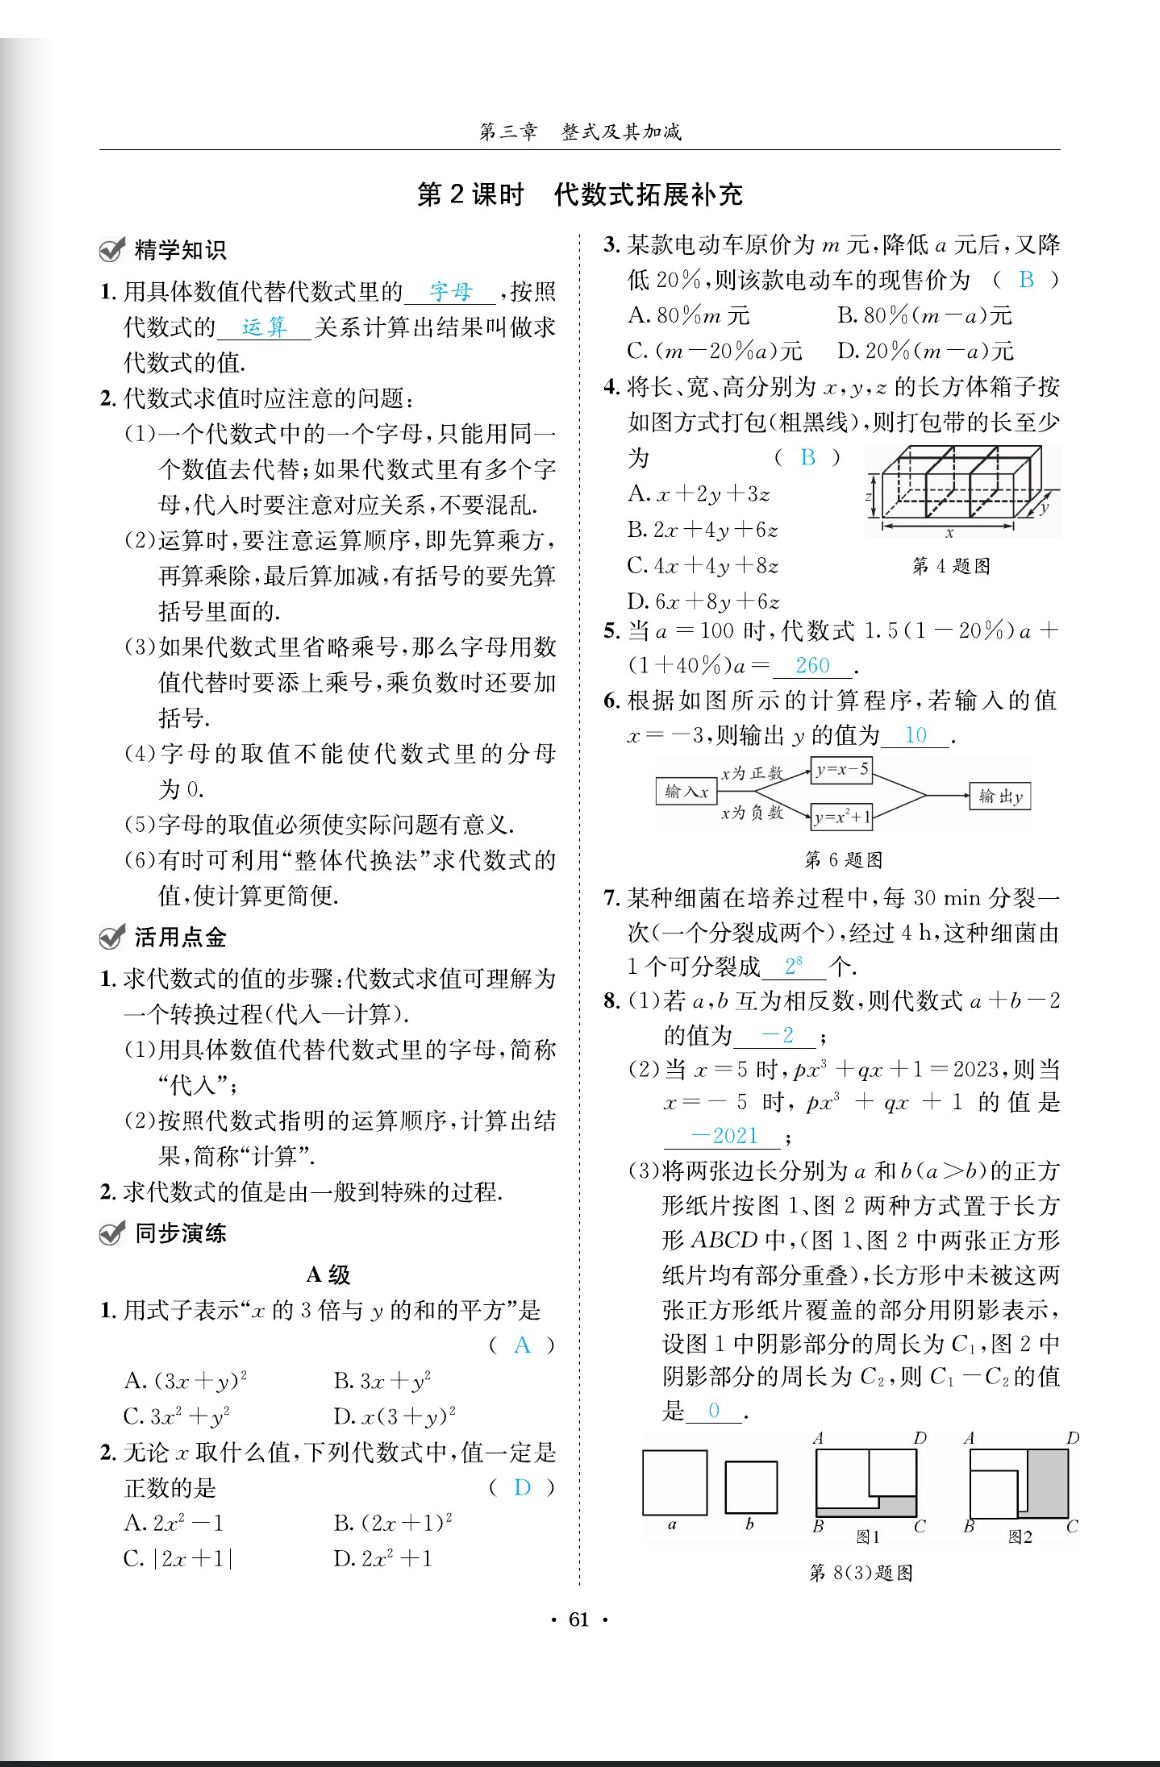 第三章　整式及其加减
第2课时　代数式拓展补充
精学知识
1. 用具体数值代替代数式里的 字母 ,按照
代数式的 运算 关系计算出结果叫做求
代数式的值.
2. 代数式求值时应注意的问题:
(1)一个代数式中的一个字母,只能用同一
个数值去代替;如果代数式里有多个字
母,代入时要注意对应关系,不要混乱.
(2)运算时,要注意运算顺序,即先算乘方,
再算乘除,最后算加减,有括号的要先算
括号里面的.
(3)如果代数式里省略乘号,那么字母用数
值代替时要添上乘号,乘负数时还要加
括号.
(4)字母的取值不能使代数式里的分母
为0.
(5)字母的取值必须使实际问题有意义.
(6)有时可利用“整体代换法”求代数式的
值,使计算更简便.
活用点金
1. 求代数式的值的步骤:代数式求值可理解为
一个转换过程(代入—计算).
(1)用具体数值代替代数式里的字母,简称
“代入”;
(2)按照代数式指明的运算顺序,计算出结
果,简称“计算”.
2. 求代数式的值是由一般到特殊的过程.
同步演练
A级
1. 用式子表示“x的3倍与y的和的平方”是
( A )
A. (3x+y)² B. 3x+y²
C. 3x²+y² D. x(3+y)²
2. 无论x取什么值,下列代数式中,值一定是
正数的是 ( D )
A. 2x²-1 B. (2x+1)²
C. |2x+1| D. 2x²+1
3. 某款电动车原价为m元,降低a元后,又降
低20%,则该款电动车的现售价为 ( B )
A. 80%m元 B. 80%(m-a)元
C. (m-20%a)元 D. 20%(m-a)元
4. 将长、宽、高分别为x,y,z的长方体箱子按
如图方式打包(粗黑线),则打包带的长至少
为 ( B )
A. x+2y+3z
B. 2x+4y+6z
C. 4x+4y+8z
D. 6x+8y+6z
z
y
x
第4题图
5. 当a=100时,代数式1.5(1-20%)a+
(1+40%)a= 260 .
6. 根据如图所示的计算程序,若输入的值
x=-3,则输出y的值为 10 .
输入x
x为正数
x为负数
y=x-5
y=x²+1
输出y
第6题图
7. 某种细菌在培养过程中,每30 min分裂一
次(一个分裂成两个),经过4 h,这种细菌由
1个可分裂成 2⁸ 个.
8. (1)若a,b互为相反数,则代数式a+b-2
的值为 -2 ;
(2)当x=5时,px³+qx+1=2023,则当
x=-5时,px³+qx+1的值是
-2021 ;
(3)将两张边长分别为a和b(a>b)的正方
形纸片按图1、图2两种方式置于长方
形ABCD中,(图1、图2中两张正方形
纸片均有部分重叠),长方形中未被这两
张正方形纸片覆盖的部分用阴影表示,
设图1中阴影部分的周长为C₁,图2中
阴影部分的周长为C₂,则C₁-C₂的值
是 0 .
A D A D
a b B C B C
图1 图2
第8(3)题图
· 61 ·